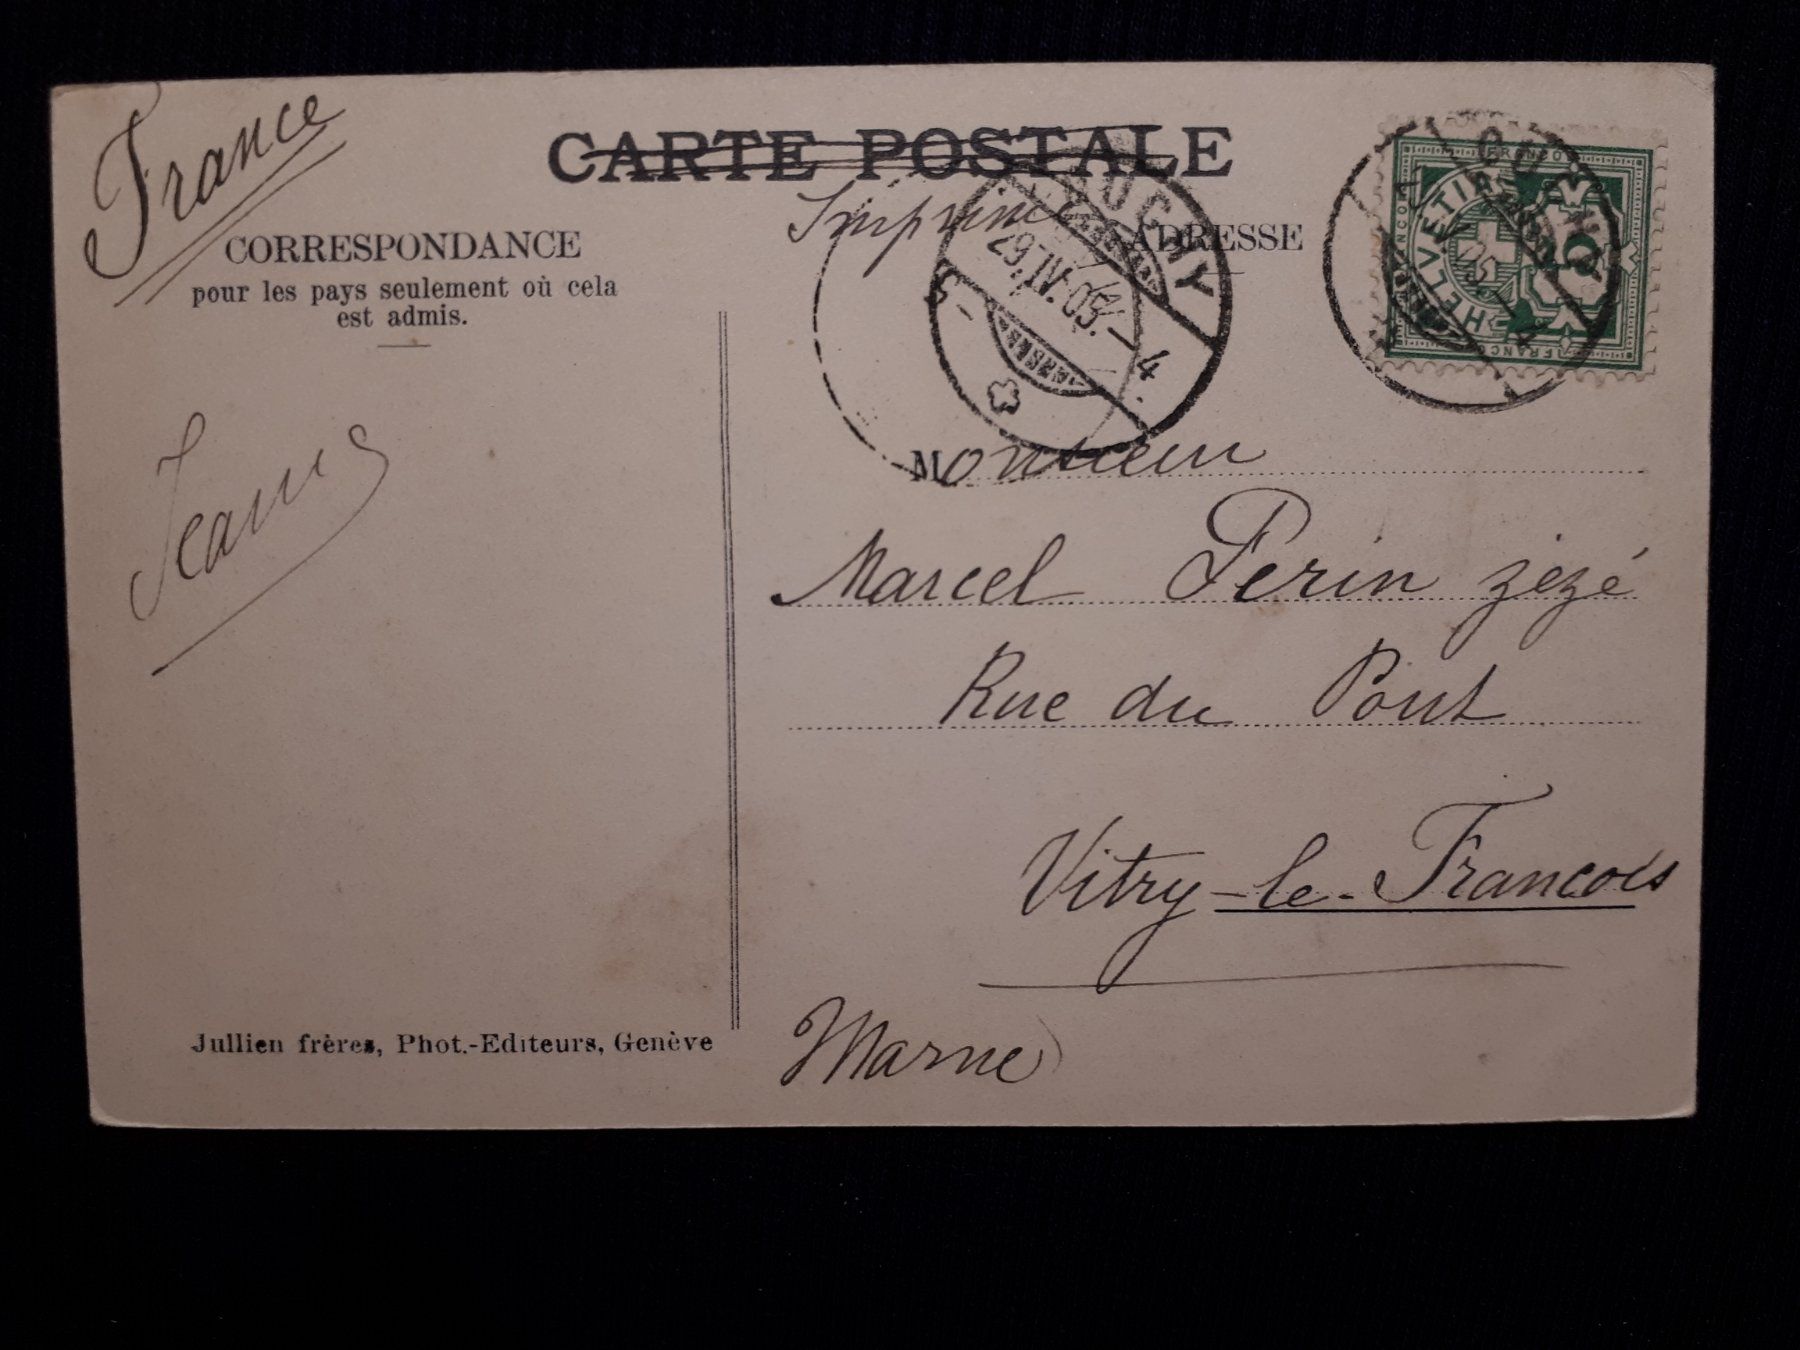 France
CARTE POSTALE
Imprimé
CORRESPONDANCE
pour les pays seulement où cela
est admis.
ADRESSE
OUCHY
29.IV.05.-4
FRANCO
HELVETIA
5
FRANCO
Jeanne
Monsieur
Marcel Perin zézé
Rue du Pont
Vitry-le-Francois
Marne
Jullien frères, Phot.-Editeurs, Genève